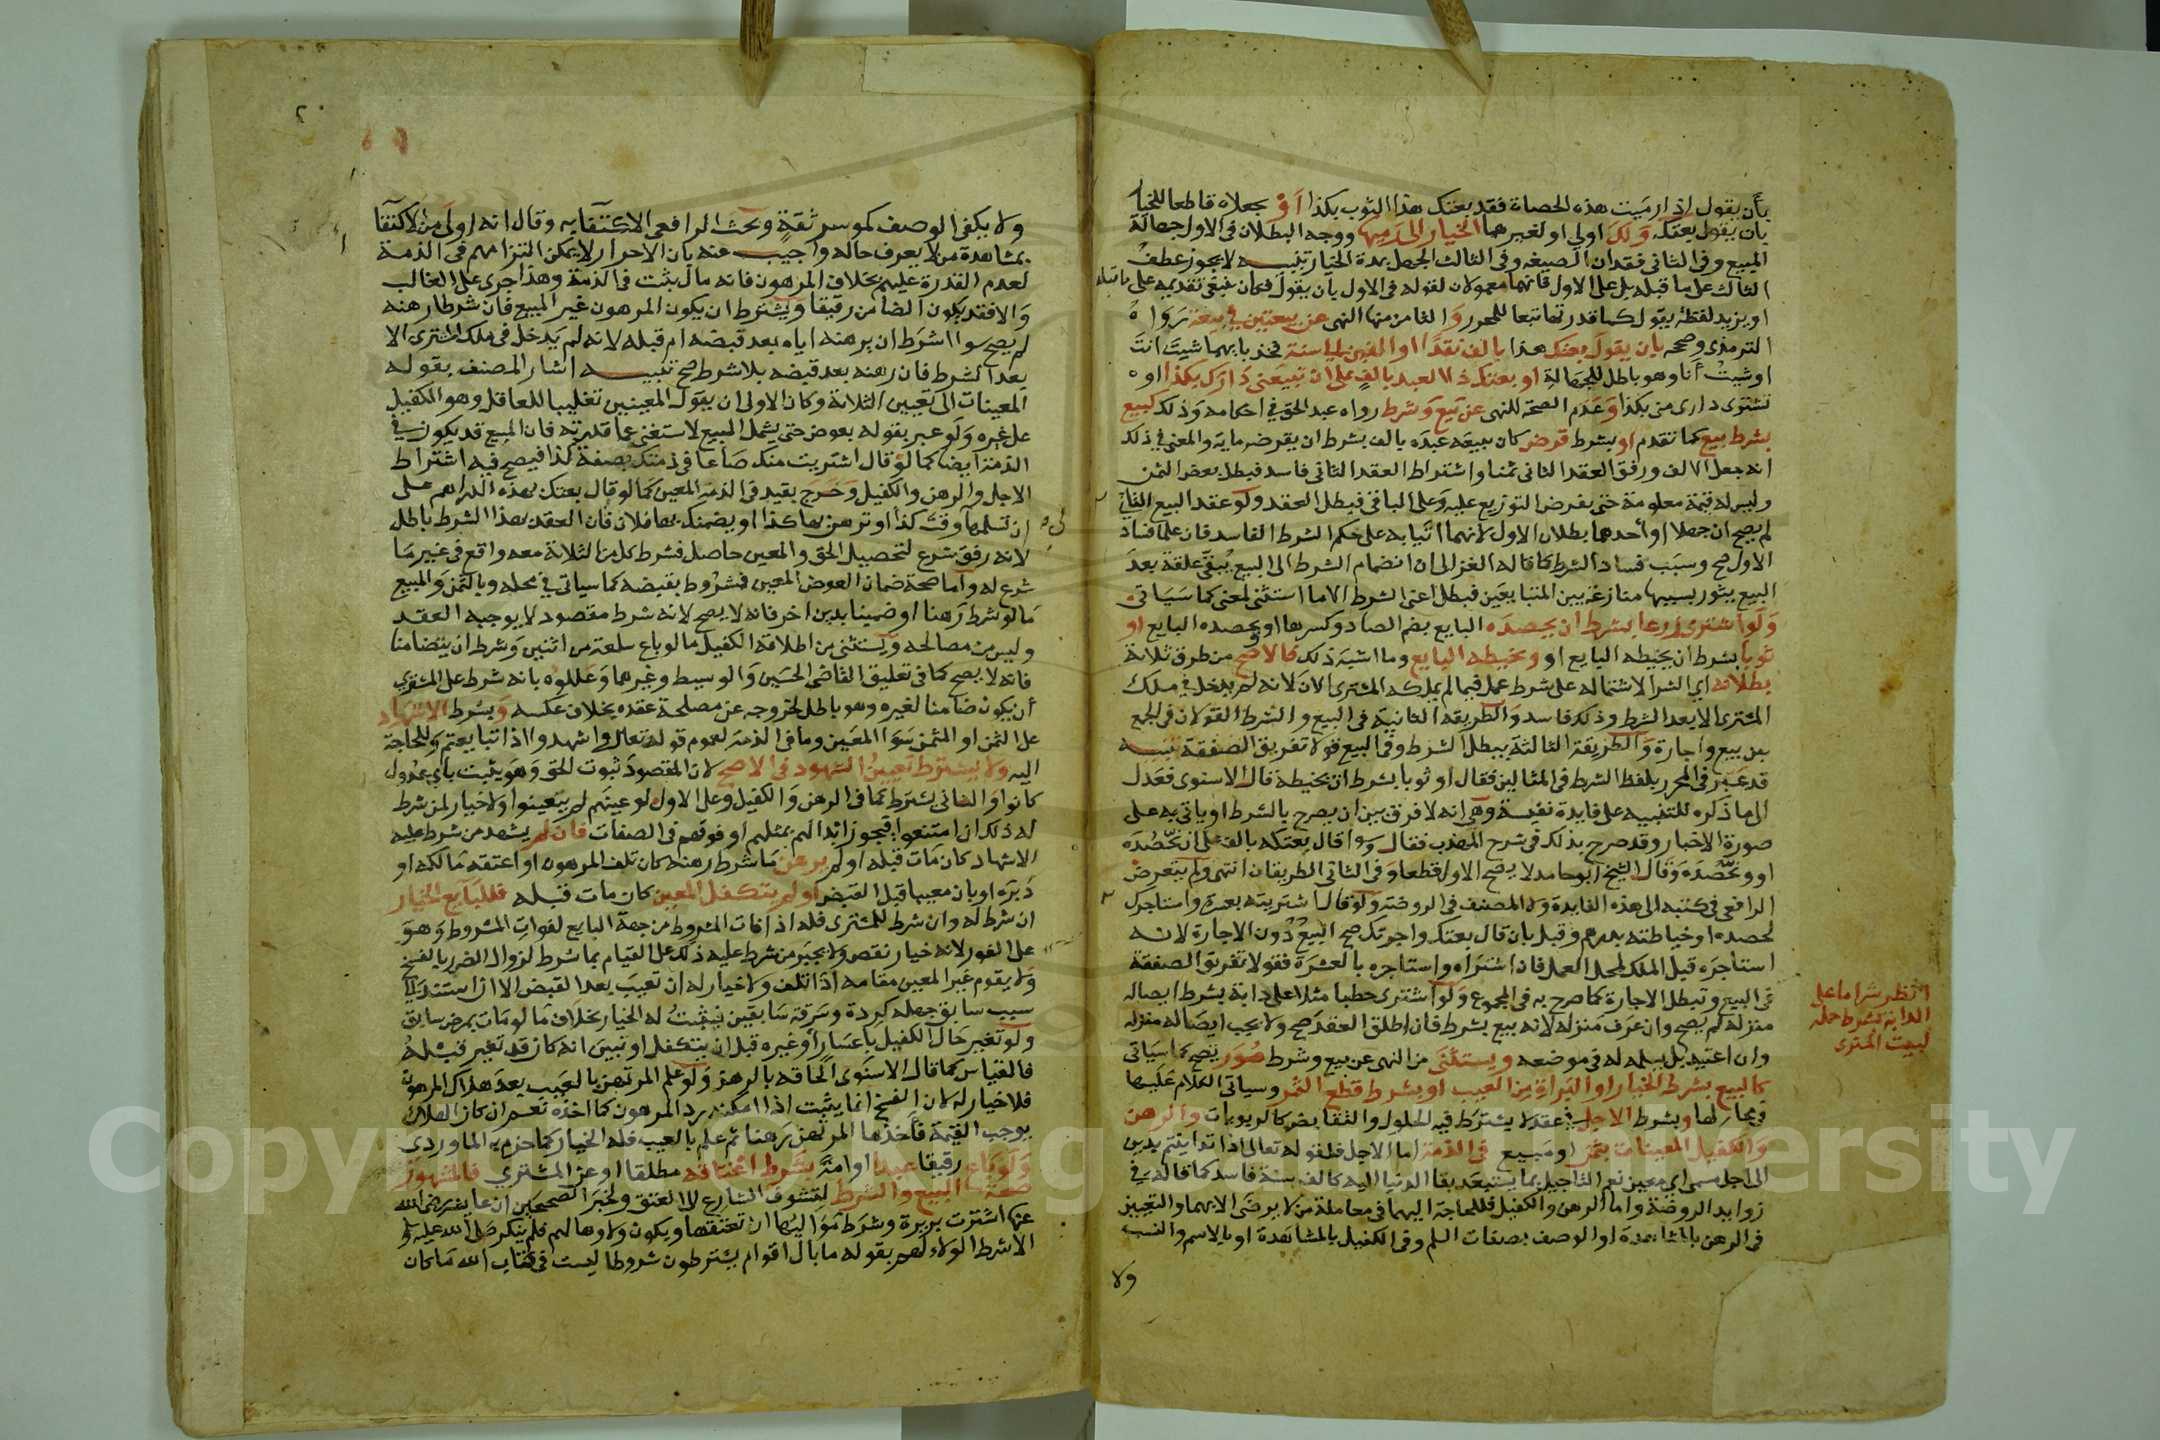 بأن يقول اذا رميت هذه الحصاة فقد بعتك هذا الثوب بكذا أو يجعلاه قاطعا للخيار
بان يقول بعتكه ولك اولي او لغيرهما الخيار الى رميها ووجه البطلان في الاول جهالة
المبيع وفي الثاني فقدان الصيغه وفي الثالث الجهل بمدة الخيار تنبيه لا يجوز عطف
الثالث على ما قبله بل على الاول فانهما معمولان لقوله في الاول بان يقول فكان ينبغي تقديمه على ما قبله
او يزيد لفظه يقول كما قدرتها تبعا للمحرر والثامن منها النهي عن بيعتين في بيعة رواه
الترمذي وصححه بان يقول بعتك هذا بالف نقدا او الفين الى سنة فخذ بايهما شيت انت
او شيت أنا وهو باطل للجهالة او بعتك ذا العبد بالف على ان تبيعني دارك بكذا او
تشتري داري مني بكذا وعدم الصحة للنهي عن بيع وشرط رواه عبد الحق في احكامه وذلك كبيع
بشرط بيع كما تقدم او بشرط قرض كان يبيعه عبده بالف بشرط ان يقرضه ماية والمعنى في ذلك
انه جعل الالف ورفق العقد الثاني ثمنا واشتراط العقد الثاني فاسد فبطل بعض الثمن
وليس له قيمة معلومة حتى يفرض التوزيع عليه وعلى الباقي فبطل العقد ولو عقد البيع الثاني
لم يصح ان جهلا او أحدهما بطلان الاول لانهما اتيا به على حكم الشرط الفاسد فان علما فساد
الاول صح وسبب فساد الشرط كما قاله الغزالي ان انضمام الشرط الى البيع يبقي علقة بعد
البيع يثور بسببها منازعة بين المتبايعين فبطل اعني الشرط الا ما استثني لمعنى كما سياتي
ولو اشترى زرعا بشرط ان يحصده البايع بضم الصاد وكسرها او يحصده البايع او
ثوبا بشرط ان يخيطه البايع او ويخيطه البايع وما اشبه ذلك فالاصح من طرق ثلاثة
بطلانه اي الشرا لاشتماله على شرط عمل فيما لم يملكه المشتري الان لانه لم يدخل في ملك
المشتري الا بعد الشرط وذلك فاسد والطريقة الثانية في البيع والشرط القولان في الجمع
بين بيع واجارة والطريقة الثالثة يبطل الشرط وفي البيع قولا تفريق الصفقة تنبيه
قد عبر في المحرر بلفظ الشرط في المثالين فقال او ثوبا بشرط ان يخيطه قال الاسنوي فعدل
الى ما ذكره للتنبيه على فايدة نفيسة وهي انه لا فرق بين ان يصرح بالشرط او ياتي به على
صورة الاخبار وقد صرح بذلك في شرح المهذب فقال وسوا قال بعتكه بالف على ان تحصده
او وتحصده وقال الشيخ ابو حامد لا يصح الاول قطعا وفي الثاني الطريقان انتهى ولم يتعرض
الرافعي في كتبه الى هذه الفايدة ولا المصنف في الروضة ولو قال اشتريته بعشرة واستاجرتك
لحصده او خياطته بدرهم وقبل بان قال بعتك واجرتك صح البيع دون الاجارة لانه
استاجره قبل الملك لمحل العمل فان اشتراه واستاجره بالعشرة فقولا تفريق الصفقة
في البيع وتبطل الاجارة كما صرح به في المجموع ولو اشترى حطبا مثلا على دابة بشرط ايصاله
منزله لم يصح وان عرف منزله لانه بيع بشرط فان اطلق العقد صح ولا يجب ايصاله منزله
وان اعتيد بل يسلمه له في موضعه ويستثنى من النهي عن بيع وشرط صور يصح كما سياتي
كالبيع بشرط الخيار او البراة من العيب او بشرط قطع الثمر وسياتي الكلام عليها
في محالها وبشرط الاجل في عقد لا يشترط فيه الحلول والتقابض كالربويات والرهن
والكفيل المعينات بثمن او مبيع في الذمة اما الاجل فلقوله تعالى اذا تداينتم بدين
الى اجل مسمى اي معين نعم التاجيل بما يستبعد بقا الدنيا اليه كالف سنة فاسد كما قاله في
زوايد الروضة واما الرهن والكفيل فللحاجة اليهما في معاملة من لا يرضى الا بهما والتعيين
في الرهن بالمشاهدة او الوصف بصفات السلم وفي الكفيل بالمشاهدة او بالاسم والنسب
ولا
انظر شراما على
الدابة بشرط حمله
لبيت المشتري
ولا يكفي الوصف كموسر ثقة وبحث الرافعي الاكتفا به وقال انه اولى من الاكتفا
بمشاهدة من لا يعرف حاله واجيب عنه بان الاحرار لا يمكن التزامهم في الذمة
لعدم القدرة عليهم بخلاف المرهون فانه مال يثبت في الذمة وهذا جرى على الغالب
والا فقد يكون الضامن رقيقا ويشترط ان يكون المرهون غير المبيع فان شرطا رهنه
لم يصح سوا اشرط ان يرهنه اياه بعد قبضه ام قبله لانه لم يدخل في ملك المشتري الا
بعد الشرط فان رهنه بعد قبضه بلا شرط صح تنبيه اشار المصنف بقوله
المعينات الى تعيين الثلاثة وكان الاولى ان يقول المعينين تغليبا للعاقل وهو الكفيل
على غيره ولو عبر بقوله بعوض حتى يشمل المبيع لاستغنى عما قدرته فان المبيع قد يكون في
الذمة ايضا كما لو قال اشتريت منك صاعا في ذمتك بصفة كذا فيصح فيه اشتراط
الاجل والرهن والكفيل وخرج بقيد في الذمة المعين كما لو قال بعتك بهذه الدراهم على
ان تسلمها وقت كذا او ترهن بها كذا او يضمنك بها فلان فان العقد بهذا الشرط باطل
لانه رفق شرع لتحصيل الحق والمعين حاصل فشرط كل من الثلاثة معه واقع في غير ما
شرع له واما صحة ضمان العوض المعين فمشروط بقبضه كما سياتي في محله وبالثمن والمبيع
ما لو شرط رهنا او ضمينا بدين اخر فانه لا يصح لانه شرط مقصود لا يوجبه العقد
وليس من مصالحه ويستثنى من اطلاقه الكفيل ما لو باع سلعة من اثنين وشرط ان يتضامنا
فانه لا يصح كما في تعليق القاضي الحسين والوسيط وغيرهما وعللوه بانه شرط على المشتري
أن يكون ضامنا لغيره وهو باطل لخروجه عن مصلحة عقده بخلاف عكسه وبشرط الاشهاد
على الثمن او المثمن سوا المعين وما في الذمة لعموم قوله تعالى واشهدوا اذا تبايعتم وللحاجة
اليه ولا يشترط تعيين الشهود في الاصح لان المقصود ثبوت الحق وهو يثبت باي عدول
كانوا والثاني يشترط كما في الرهن والكفيل وعلى الاول لو عينهم لم يتعينوا ولا خيار لمن شرط
له ذلك ان امتنعوا فيجوز ابدالهم بمثلهم او فوقهم في الصفات فان لم يشهد من شرط عليه
الاشهاد كان مات قبله او لم يرهن ما شرط رهنه كان تلف المرهون او اعتقه مالكه او
دبره او بان معيبا قبل القبض او لم يتكفل المعين كان مات قبله فللبايع الخيار
ان شرط له وان شرط للمشتري فله اذا فات المشروط من جهة البايع لفوات المشروط وهو
على الفور لانه خيار نقص ولا يجبر من شرط عليه ذلك على القيام بما شرط لزوال الضرر بالفسخ
ولا يقوم غير المعين مقامه اذا تلف ولا خيار له ان تعيب بعد القبض الا ان استند الى
سبب سابق جهله كردة وسرقة سابقين فيثبت له الخيار بخلاف ما لو مات بمرض سابق
ولو تغير حال الكفيل باعسار أو غيره قبل ان يتكفل او تبين انه كان قد تغير قبله
فالقياس كما قال الاسنوي الحاقه بالرهن ولو علم المرتهن بالعيب بعد هلاك المرهون
فلا خيار له لان الفسخ انما يثبت اذا امكنه رد المرهون كما اخذه نعم ان كان الهلاك
يوجب القيمة فاخذها المرتهن رهنا ثم علم بالعيب فله الخيار كما جزم به الماوردي
ولو باع رقيقا عبدا او امة بشرط اعتاقه مطلقا او عن المشتري فالمشهور
صحة البيع والشرط لتشوف الشارع الى العتق ولخبر الصحيحين ان عايشة رضي الله
عنها اشترت بريرة وشرط مواليها ان تعتقها ويكون ولاوها لهم فلم ينكر صلى الله عليه وسلم
الا شرط الولاء لهم بقوله ما بال اقوام يشترطون شروطا ليست في كتاب الله ما كان
Copyright © King Saud University